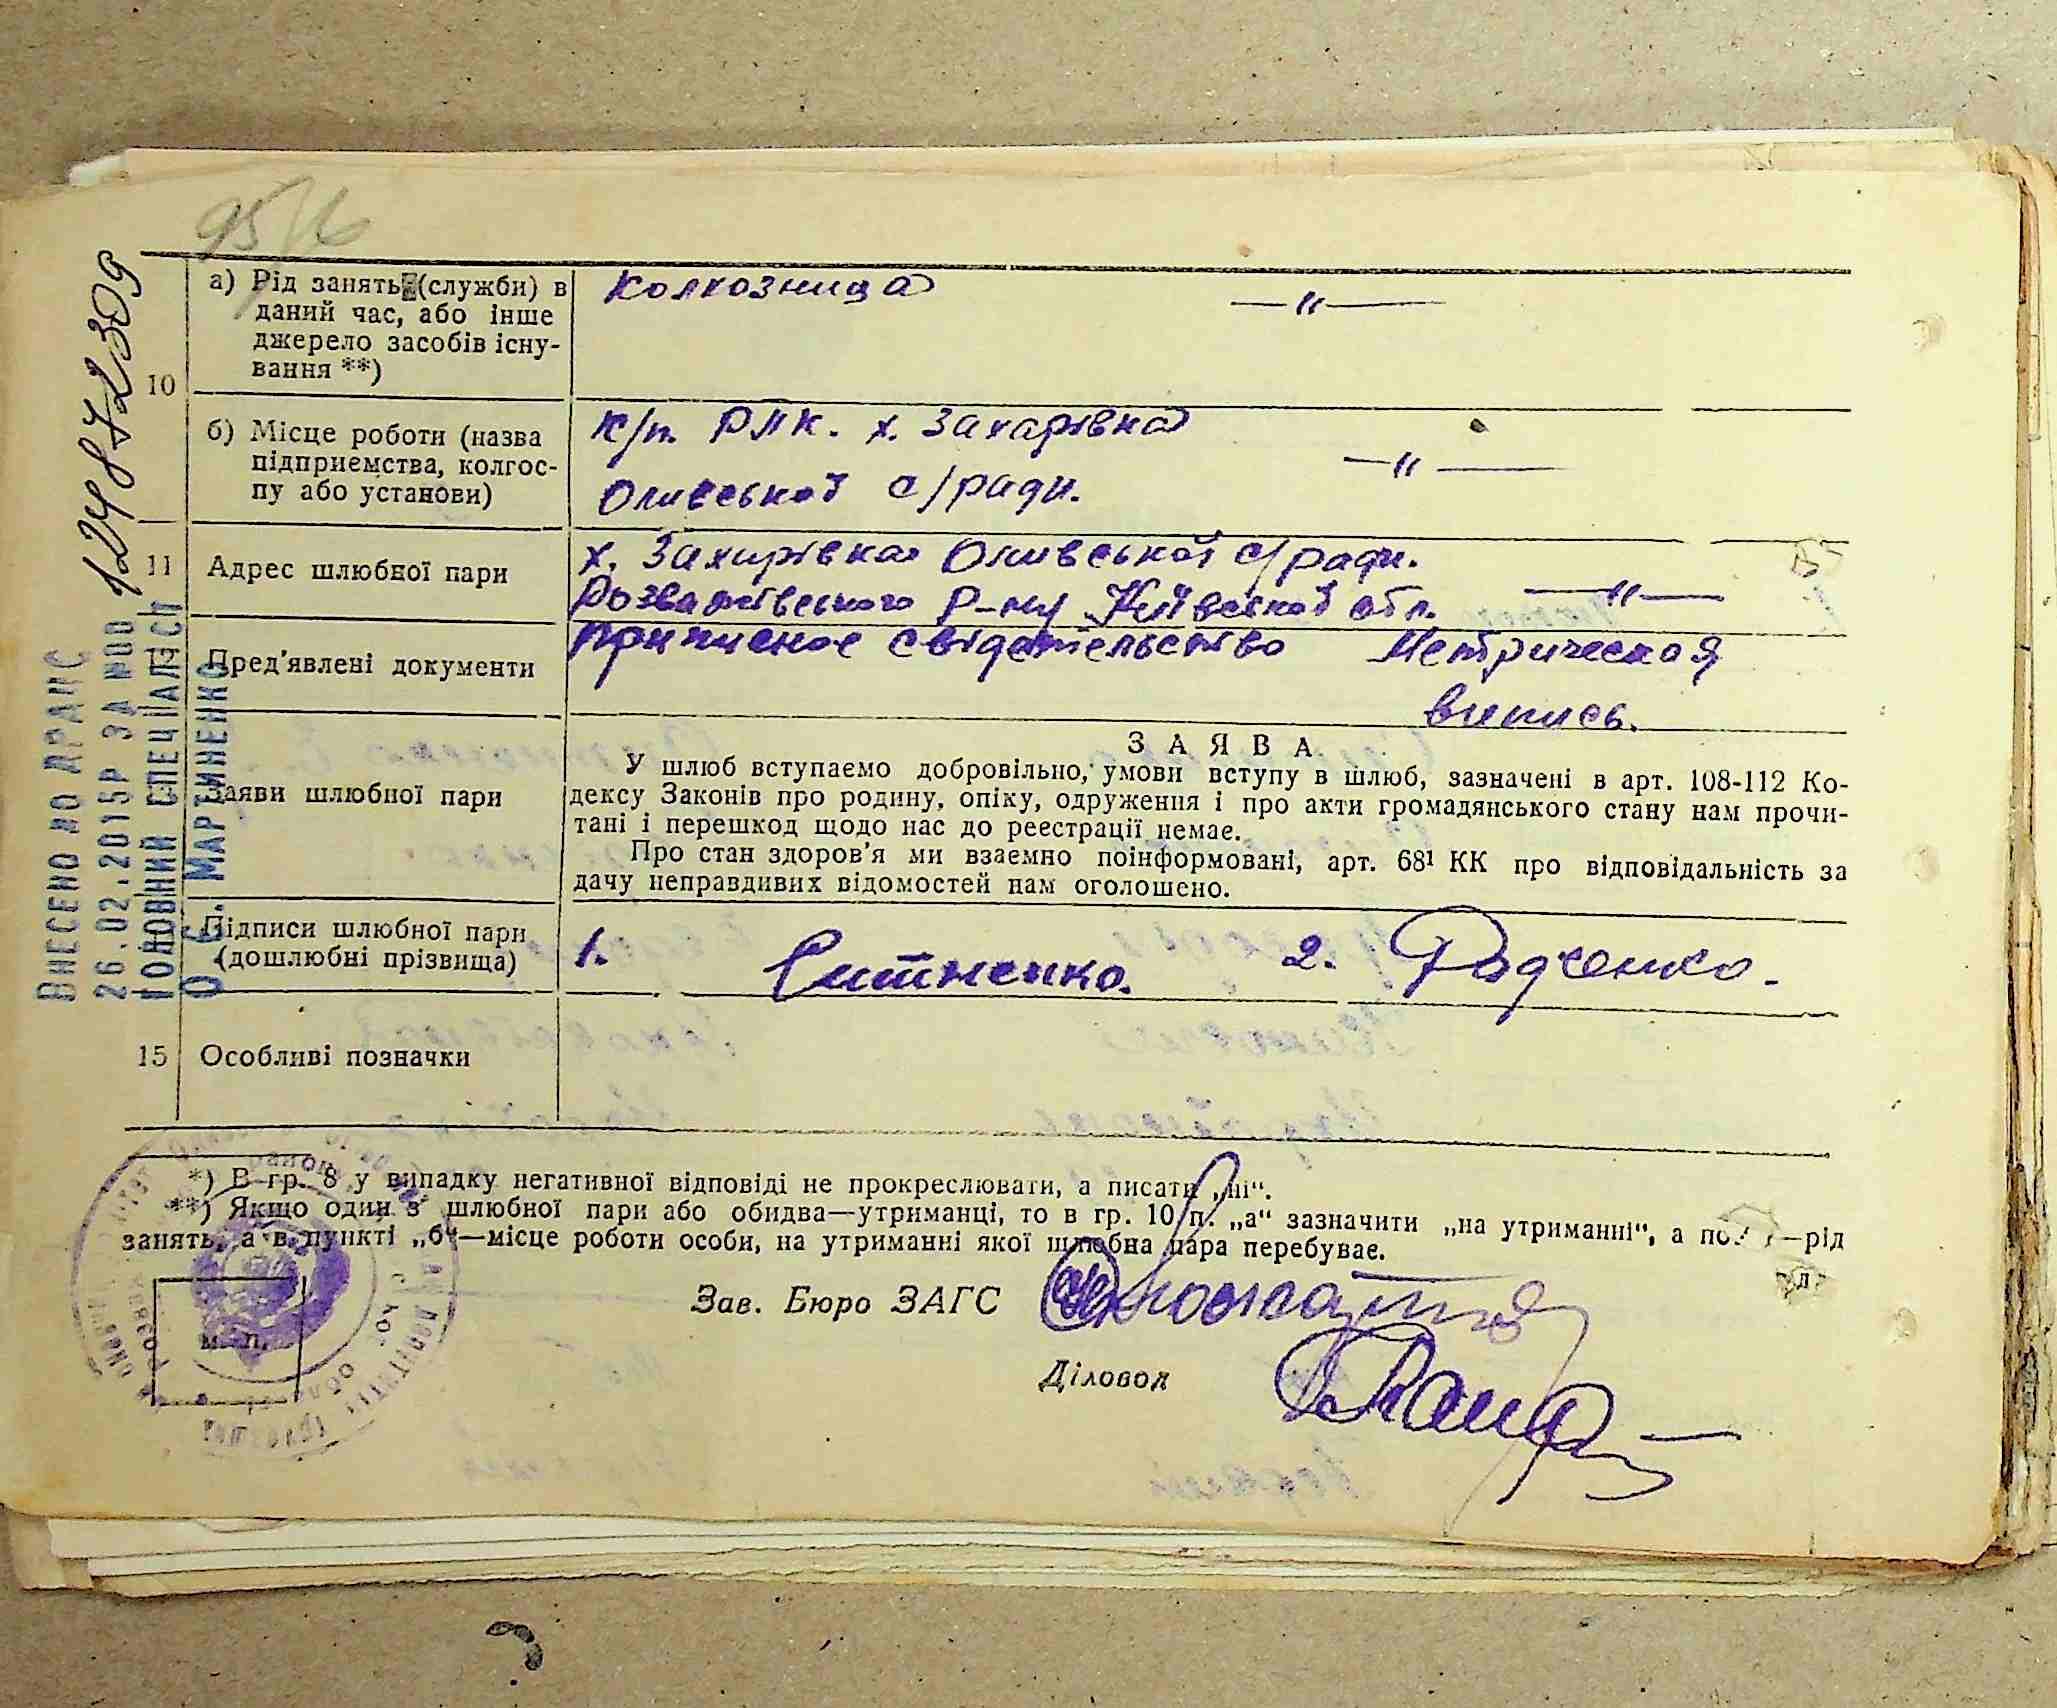 95/6
1248872309
ВНЕСЕНО ДО ДРАЦС
26.02.2015Р ЗА №00
ГОЛОВНИЙ СПЕЦІАЛІСТ
О.Б. МАРТИНЕНКО
10
а) Рід занять (служби) в
даний час, або інше
джерело засобів існу-
вання **)
Колхозница —〃—
б) Місце роботи (назва
підприємства, колгос-
пу або установи)
К/п. РЛК. х. Захарівка
Оливської с/ради. —〃—
11
Адрес шлюбної пари
х. Захарівка Оливської с/ради.
Розважівського р-ну Київської обл. —〃—
Пред'явлені документи
Приписное свідетельство Метрическая
випись.
Заяви шлюбної пари
ЗАЯВА
У шлюб вступаємо добровільно, умови вступу в шлюб, зазначені в арт. 108-112 Ко-
дексу Законів про родину, опіку, одруження і про акти громадянського стану нам прочи-
тані і перешкод щодо нас до реестрації немае.
Про стан здоров'я ми взаемно поінформовані, арт. 68¹ КК про відповідальність за
дачу неправдивих відомостей нам оголошено.
Підписи шлюбної пари
(дошлюбні прізвища)
1. Ситненко. 2. Радченко.
15
Особливі позначки
*) В гр. 8 у випадку негативної відповіді не прокреслювати, а писати „ні“.
**) Якщо один з шлюбної пари або обидва—утриманці, то в гр. 10 п. „а“ зазначити „на утриманні“, а —рід
занять, а в пункті „б“—місце роботи особи, на утриманні якої шлюбна пара перебувае.
м. п.
Зав. Бюро ЗАГС
Діловод